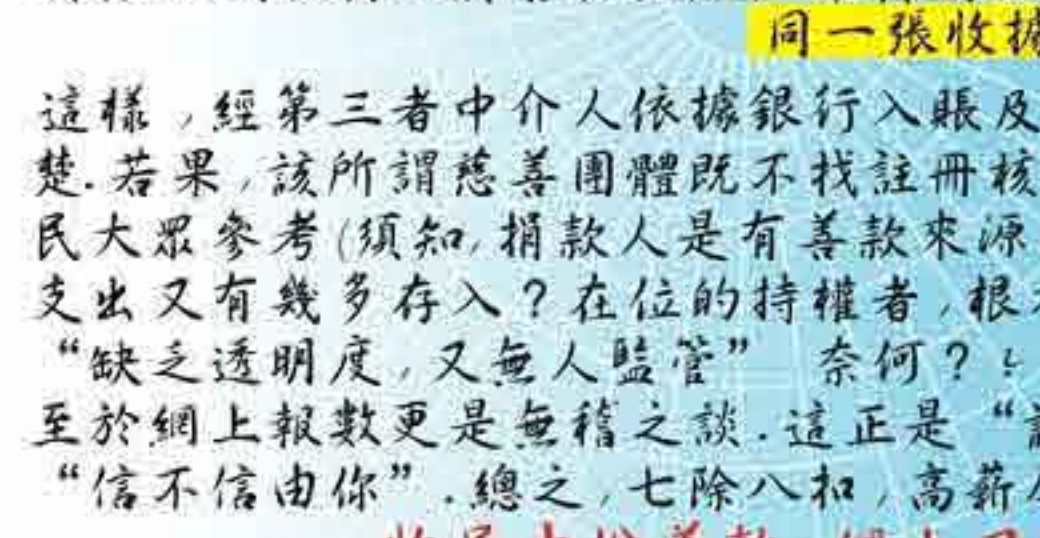 同一張收據
這樣,經第三者中介人依據銀行入賬及
楚.若果,該所謂慈善團體既不找註冊核
民大眾參考(須知,捐款人是有善款來源
支出又有幾多存入?在位的持權者,根
“缺乏透明度,又無人監管” 奈何?
至於網上報數更是無稽之談.這正是“
“信不信由你”.總之,七除八扣,高薪